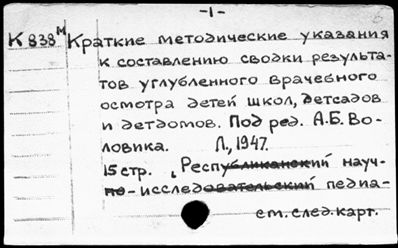 -1-
К 838м Краткие методические указания
к составлению сводки результа-
тов углубленного врачебного
осмотра детей школ, детсадов
и детдомов. Под ред. А.Б. Во-
ловика. Л., 1947.
15 стр. „Республиканский науч-
но-исследовательский педиа-
см. след. карт.